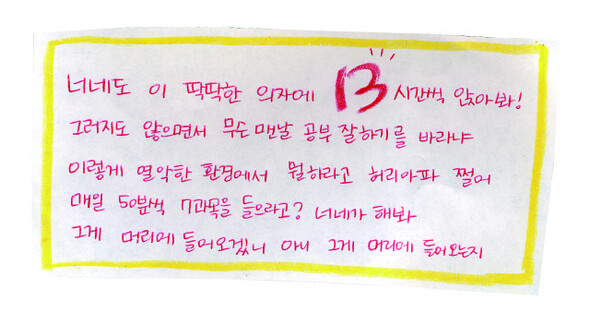 너네도 이 딱딱한 의자에 13 시간씩 앉아봐!
그러지도 않으면서 무슨 맨날 공부 잘하기를 바라냐
이렇게 열악한 환경에서 뭘하라고 허리아파 쩔어
매일 50분씩 7과목을 들으라고? 너네가 해봐
그게 머리에 들어오겠니 아니 그게 머리에 들어오는지